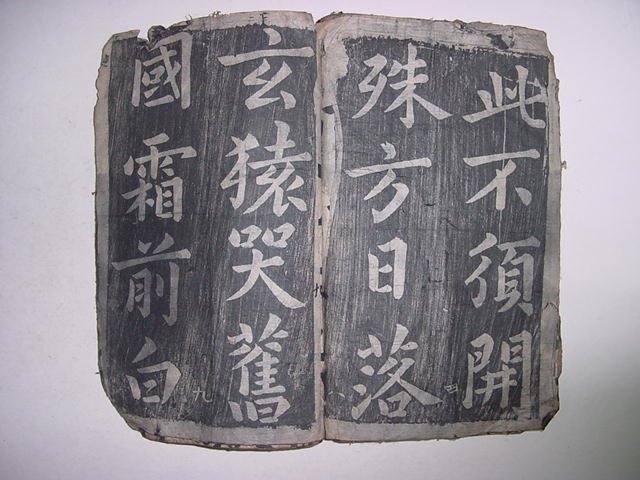 此不須開
殊方日落
玄猿哭舊
國霜前白
九